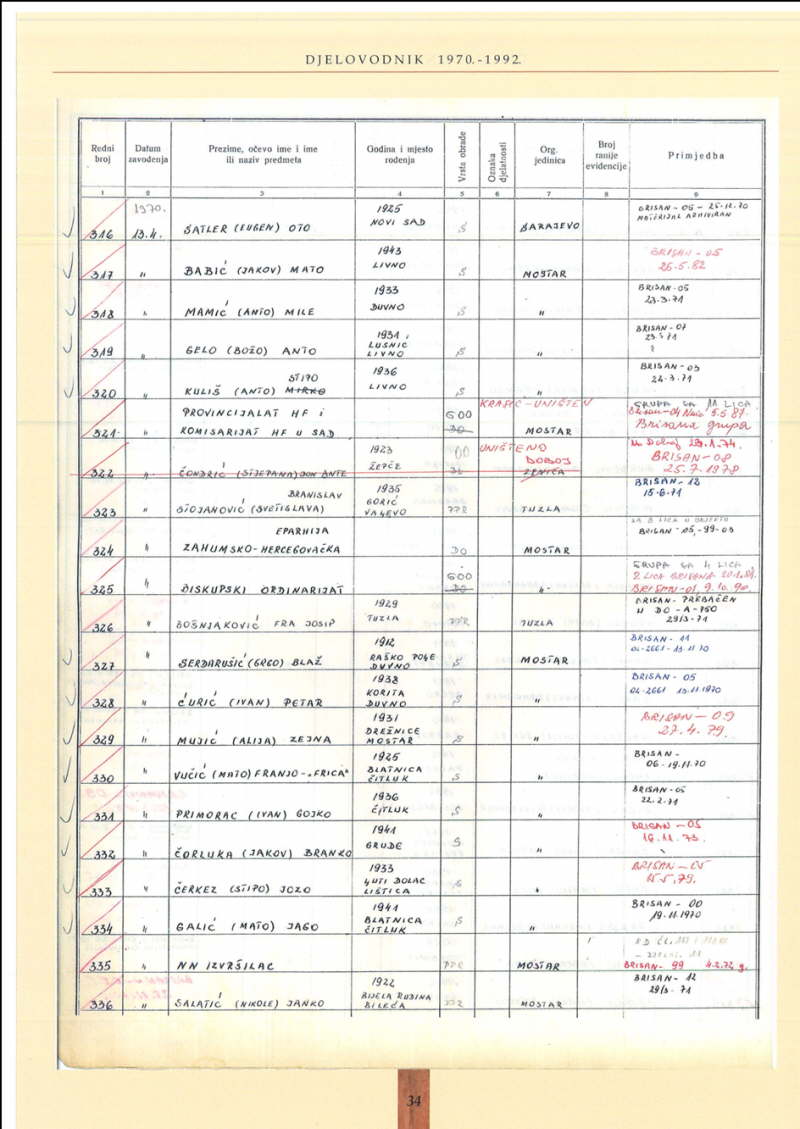 DJELOVODNIK 1970.-1992.
Redni broj
Datum zavođenja
Prezime, očevo ime i ime ili naziv predmeta
Godina i mjesto rođenja
Vrsta obrade
Oznaka djelatnosti
Org. jedinica
Broj ranije evidencije
Primjedba
1 2 3 4 5 6 7 8 9
1970. 1925 BRISAN - 05 - 25.12.70
316 13.4. SATLER (EUGEN) OTO NOVI SAD S SARAJEVO MATERIJAL ARHIVIRAN
1943 BRISAN - 05
317 " BABIĆ (JAKOV) MATO LIVNO S MOSTAR 26.5.82
1933 BRISAN-05
318 " MAMIĆ (ANTO) MILE DUVNO S " 23.3.71
1931 BRISAN-07
319 " GELO (BOŽO) ANTO LIVNO S "
STIPO 1936 BRISAN-03
320 " KULIŠ (ANTO) MIRKO LIVNO S " 24-3.71
PROVINCIJALAT HF i 600 KRAFIC-UNIŠTEN GRUPA SA 11 LICA
321. " KOMISARIJAT HF U SAD DO MOSTAR Brisana grupa
1923 UNIŠTENO DOBOJ BRISAN-08
322 " ČONDRIĆ (STJEPANA) DON ANTE ŽEPČE ZENICA 25.7.1978
BRANISLAV 1935 BRISAN-12
323 " STOJANOVIĆ (SVETISLAVA) GORIĆ VALJEVO PPR TUZLA 15.6.71
EPARHIJA
324 " ZAHUMSKO-HERCEGOVAČKA DO MOSTAR BRISAN-05,-99-03
600 GRUPA SA 4 LICA
325 " BISKUPSKI ORDINARIJAT DO " BRISAN-01. 9.10.90.
1929 BRISAN-PREBAČEN
326 " BOŠNJAKOVIĆ FRA JOSIP TUZLA PPR TUZLA U DO-A-750 29/3-71
1912 BRISAN-11
327 " SERDARUŠIĆ (GRGO) BLAŽ RAŠKO POLJE DUVNO S MOSTAR 04-2661-13.11.70
1938 BRISAN-05
328 " ĆURIĆ (IVAN) PETAR KORITA DUVNO S " 04-2661 13.11.1970
1931 BRISAN-09
329 " MUJIĆ (ALIJA) ZEJNA DREŽNICE MOSTAR S " 27.4.79.
1925 BRISAN-
330 " VUČIĆ (MATO) FRANJO-„FRICA" BLATNICA ČITLUK S " 06-19.11.70
1936 BRISAN-05
331 " PRIMORAC (IVAN) GOJKO ČITLUK S " 22.2.71
1941 BRISAN-05
332 " ČORLUKA (JAKOV) BRANKO GRUDE S " 16.11.73.
1933
333 " ČERKEZ (STIPO) JOZO LJUTI DOLAC LIŠTICA S "
1941 BRISAN-00
334 " GALIĆ (MATO) JAGO BLATNICA ČITLUK S " 19.11.1970
335 " NN IZVRŠILAC PPR MOSTAR BRISAN-99 4.2.72 g.
1922 BRISAN-12
336 " SALATIĆ (NIKOLE) JANKO BIJELA RUDINA BILEĆA PPR MOSTAR 29/3-71
34